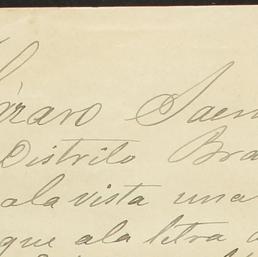 Lázaro Saen
Distrito Bra
ala vista una
que ala letra d